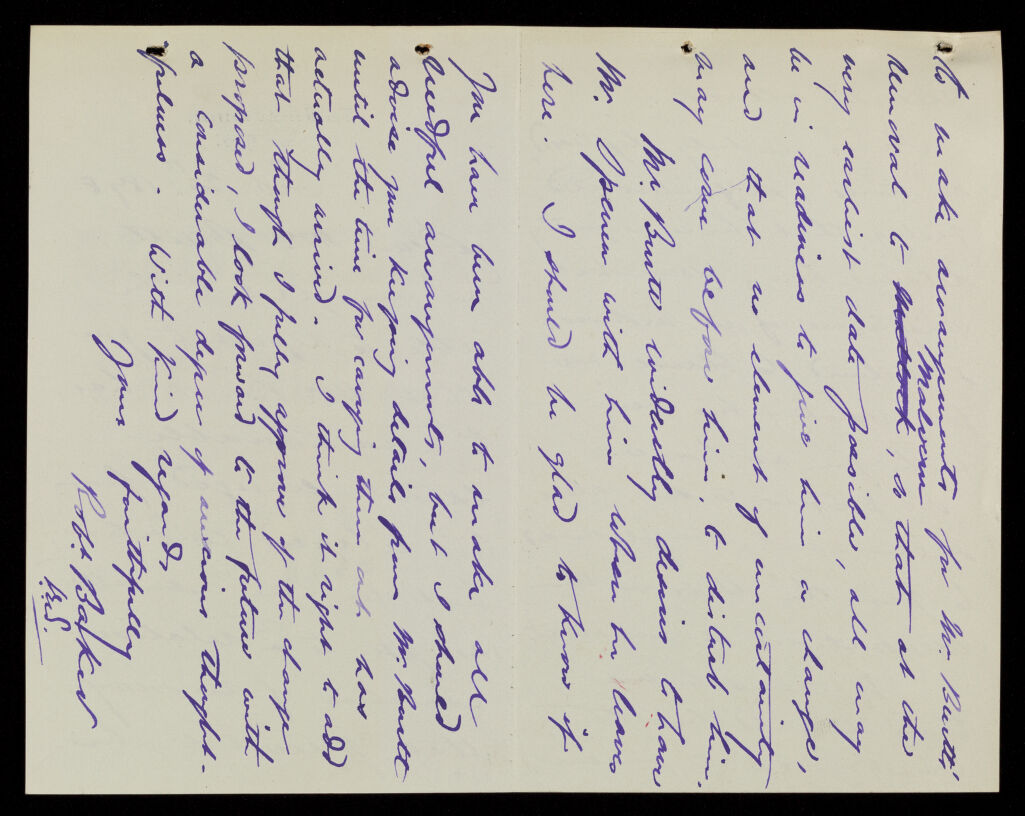 to make arrangements for Mr. Butts'
removal to Matlock, Malvern so that at the
very earliest date possible, all may
be in readiness to give him a change,
and that no element of uncertainty
may come before him, to disturb him.
Mr. Butts evidently desires to have
Mr. Spencer with him when he leaves
here. I should be glad to know if
you have been able to make all
needful arrangements, but I should
advise your keeping details from Mr. Butts
until the time for carrying them out has
actually arrived. I think it right to add
that though I fully approve of the change
proposed, I look forward to the future with
a considerable degree of anxious thought-
fulness. With kind regards,
Yours faithfully
Robt. Baker